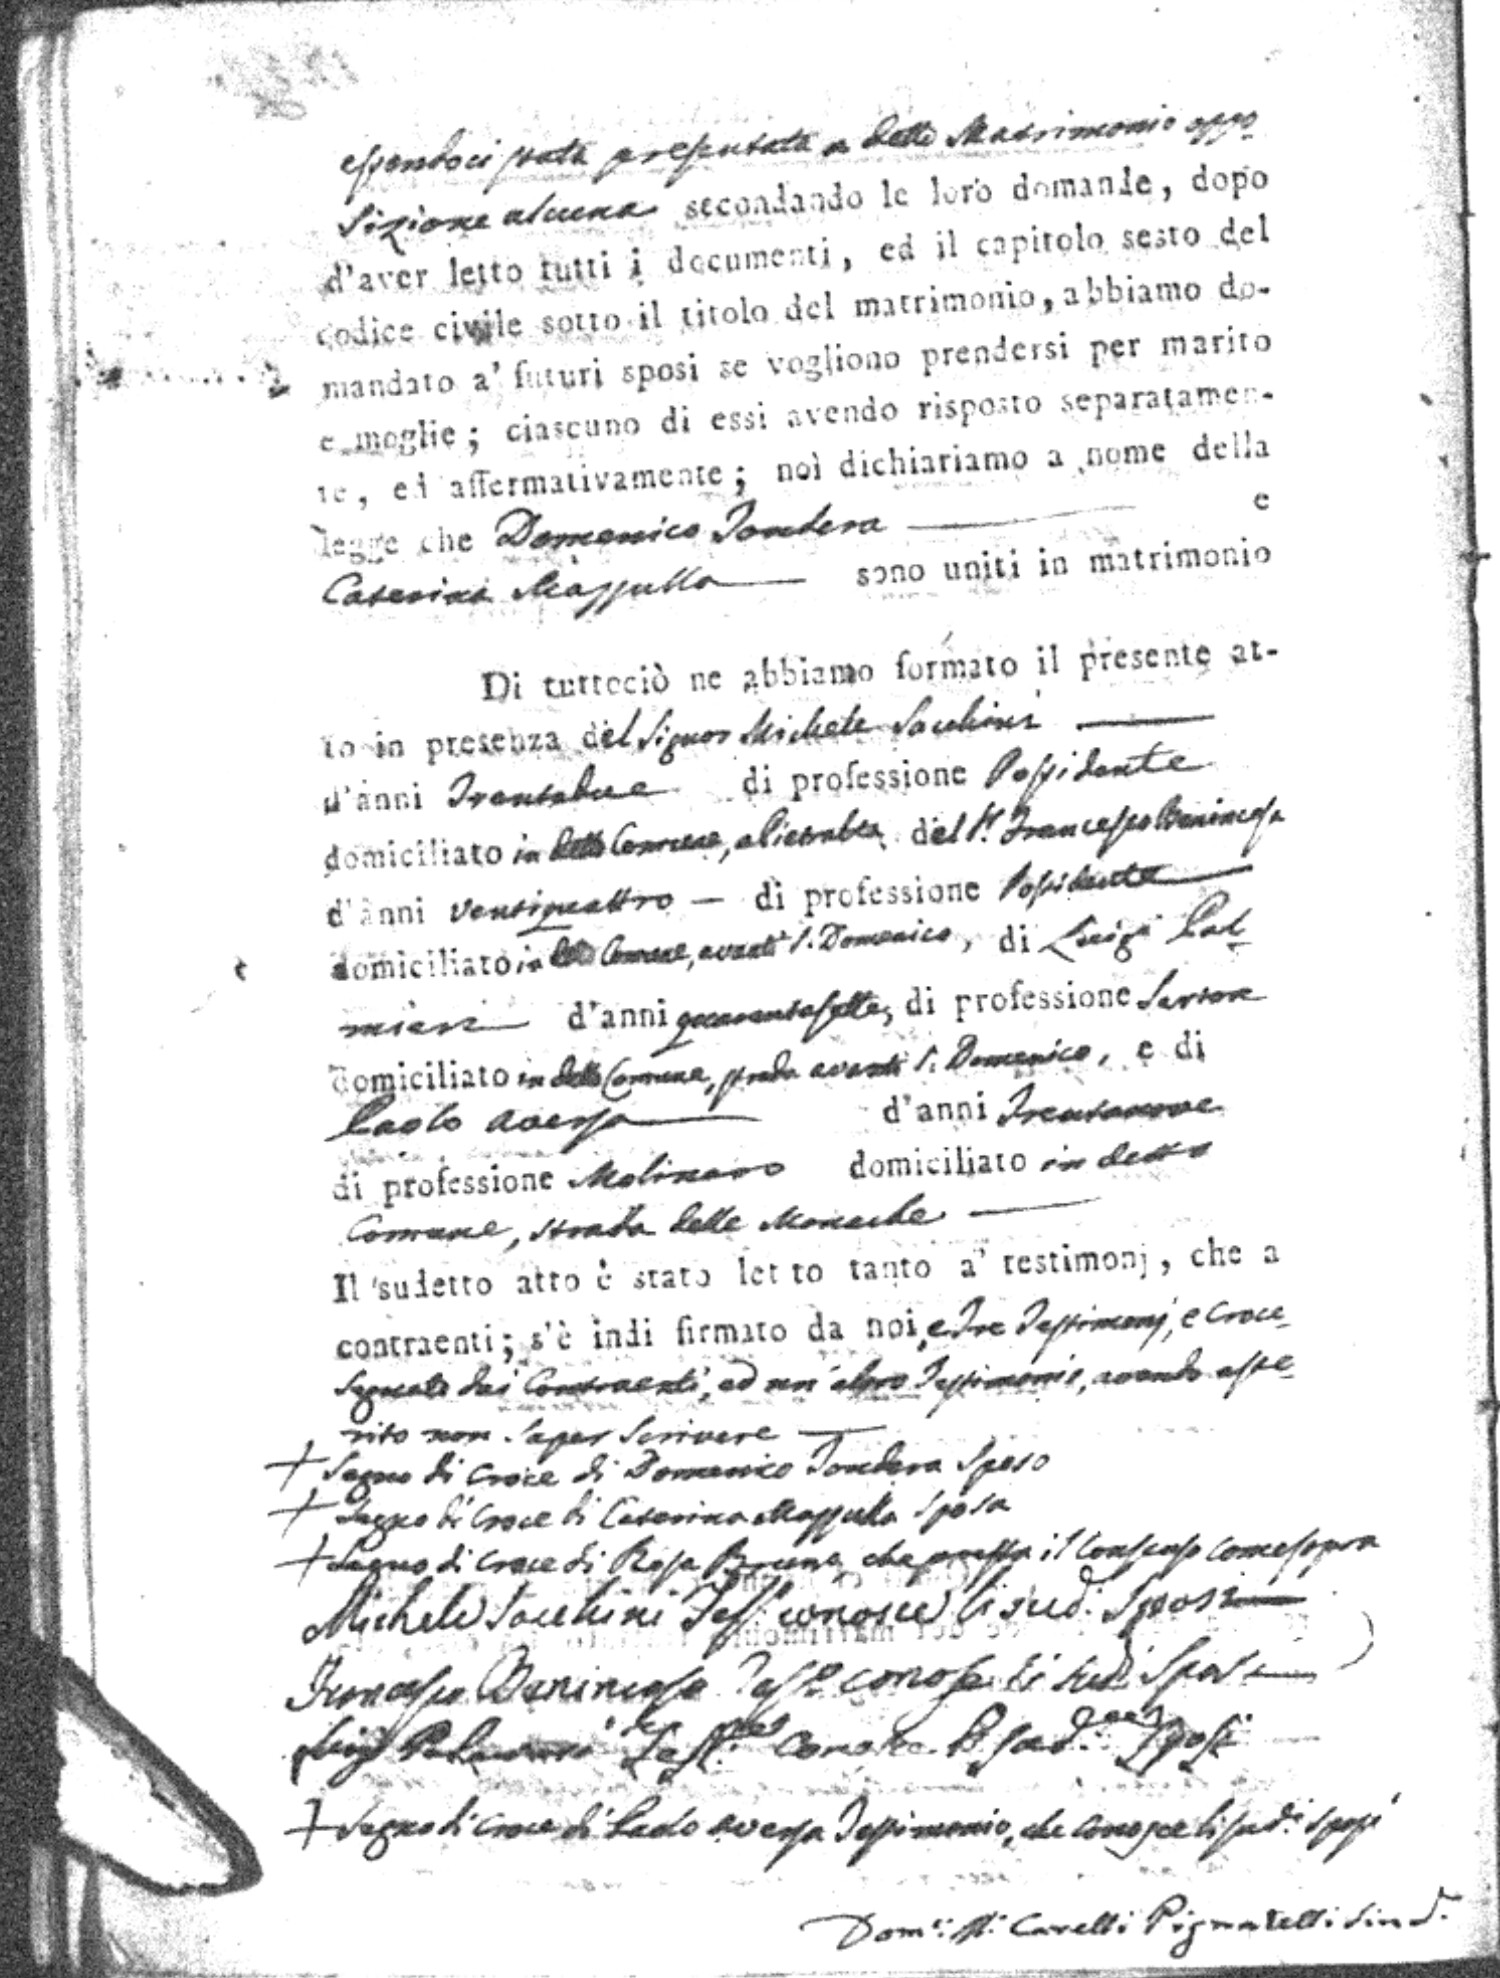 essendoci stata presentata a detto Matrimonio oppo-
sizione alcuna secondando le loro domande, dopo
d'aver letto tutti i documenti, ed il capitolo sesto del
codice civile sotto il titolo del matrimonio, abbiamo do-
mandato a' futuri sposi se vogliono prendersi per marito
e moglie; ciascuno di essi avendo risposto separatamen-
te, ed affermativamente; noi dichiariamo a nome della
legge che Domenico Tondera e
Caterina Mazzulla sono uniti in matrimonio
Di tuttociò ne abbiamo formato il presente at-
to in presenza del Signor Michele Sacchini
d'anni Trentadue di professione Possidente
domiciliato in detto Comune, a Pietrabta del S.r Francesco Benincasa
d'anni ventiquattro — di professione Possidente
domiciliato in detto Comune, avanti S. Domenico, di Luigi Pal-
mieri d'anni quarantasette, di professione Sartore
domiciliato in detto Comune, strada avanti S. Domenico, e di
Paolo Aversa d'anni Trentanove
di professione Molinaro domiciliato in detto
Comune, strada delle Monache
Il sudetto atto è stato letto tanto a' testimonj, che a
contraenti; s'è indi firmato da noi, e Tre Testimonj, e Croce-
segnato dai Contraenti, ed un'altro Testimonio, avendo asse-
rito non saper scrivere
+ Segno di Croce di Domenico Tondera Sposo
+ Segno di Croce di Caterina Mazzulla Sposa
+ Segno di Croce di Rosa Bruno, che presta il Consenso come sopra
Michele Sacchini Tess. conosce li sud.i Sposi
Francesco Benincasa Tess.o conosce li sud.i Sposi
Luigi Palmieri Tess. Conosce li sud.i Sposi
+ Segno di Croce di Paolo Aversa Testimonio, che conosce li sud.i Sposi
Dom.co M.a Carelli Pignatelli Sind.